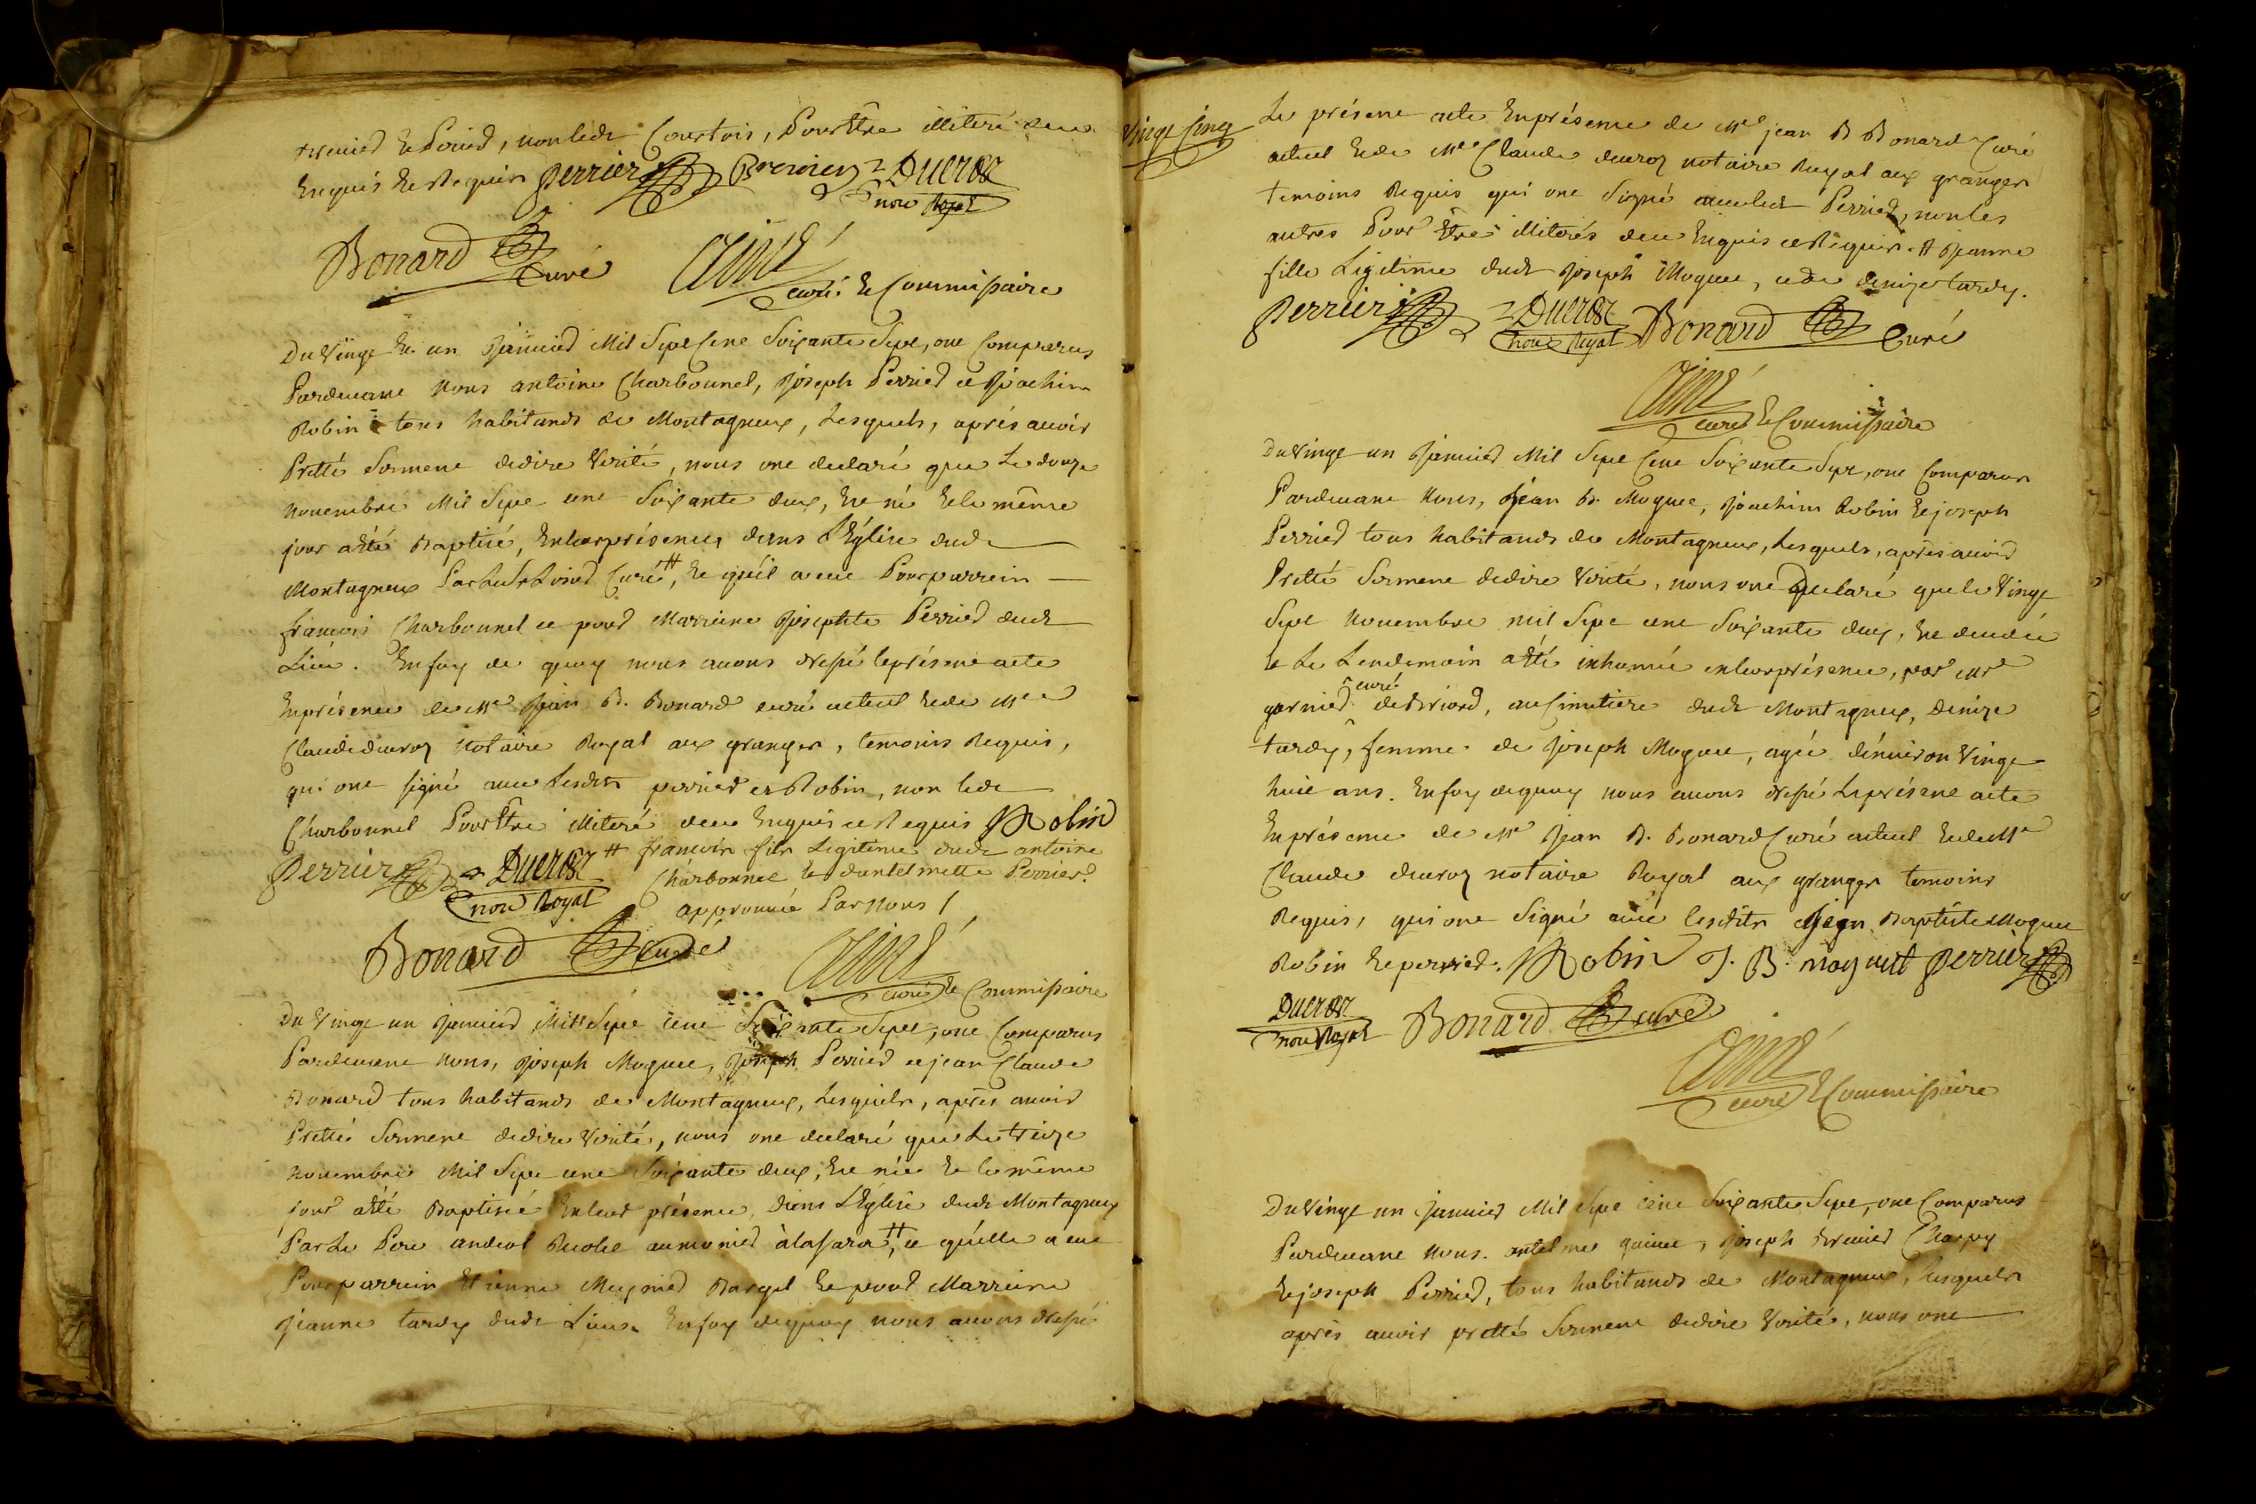 et Perrier, non ledt Courtois, Pour Etre illiteré deux
Enquis et Requis Perrier Brenier Ducroz
not Royal
Bonard curé Aimé
curé et Commissaire
Du Vingt et un Janvier Mil Sept Cent Soixante Sept, ont Comparus
Pardevant Nous antoine Charbonnel, Joseph Perrier et Joachim
Robin tous habitands de Montagneux, Lesquels, aprés avoir
Pretté Serment de dire Verité, nous ont declaré que Le douze
novembre Mil Sept cent Soixante deux, Est né Et le même
jour a été Baptisé, En leurs présences dans L'Église dudt
Montagneux Par Curé #, Et qu'il a eue Pour parrein
francois Charbonnel et pour Marreine Josephte Perrier dudt
Lieu. En foy de quoy nous avons dressé le présent acte
En présence de Mre Jean B. Bonard curé actuel Et de Mre
Claude ducroz Notaire Royal aux granges, temoins Requis,
qui ont signé avec Lesdits perrier et Robin, non ledt
Charbonnel Pour Etre illiteré deue Enquis et Requis J Robin
Perrier Ducroz # francois fils Legitime dudt antoine
not Royal Charbonnel et d'antelmette Perrier
approuvée Par Nous /
Bonard curé Aimé
curé et Commissaire
Du Vingt un Janvier Mil Sept Cent Soixante Sept, ont Comparus
Pardevant Nous, Joseph Moguet, Joseph Perrier et jean Claude
Bonard tous habitands de Montagneux, Lesquels, aprés avoir
Pretté Serment de dire Verité, nous ont declaré que Le treize
novembre Mil Sept cent Soixante deux, Est née Et le même
jour a été Baptisée En leur présence, dans L'Église dudt Montagneux
Par Le Pere aumonier #, et qu'elle a eue
Pour parrein Etienne Et pour Marreine
Jeanne tardy dudt Lieu. En foy de quoy nous avons dressé
Vingt Cinq
Le présent acte En présence de Mre jean B Bonard Curé
actuel Et de Mre Claude ducroz notaire Royal aux granges
temoins Requis qui ont Signé avec ledt Perrier, non les
autres Pour Etre illiterés deue Enquis et Requis # Jeanne
fille Legitime dudt Joseph Moguet, et de denize tardy.
Perrier Ducroz Bonard Curé
not Royal
Aimé
curé et Commissaire
Du Vingt un Janvier Mil Sept Cent Soixante Sept, ont Comparus
Pardevant Nous, Jean B. Moguet, Joachim Robin Et joseph
Perrier tous habitands de Montagneux, Lesquels, aprés avoir
Pretté Serment de dire Verité, nous ont declaré que le Vingt
Sept Novembre mil Sept cent Soixante deux, Est decedée
et Le Lendemain a été inhumée en leur présence, par Mre
garnier curé de Briord, au Cimetiere dudt Montagneux, denize
tardy, femme de Joseph Moguet, agée d'environ Vingt
huit ans. En foy de quoy nous avons dressé Le présent acte
En présence de Mre Jean B. Bonard Curé actuel Et de Mre
Claude ducroz notaire Royal aux granges temoins
Requis, qui ont Signé avec lesdits Jean Baptiste Moguet
Robin Et perrier. J Robin J. B. moguet Perrier
Ducroz
not Royal Bonard curé
Aimé
curé et Commissaire
Du Vingt un Janvier Mil Sept cent Soixante Sept, ont Comparus
Pardevant Nous. antelme , Joseph Brenier Charpy
Et joseph Perrier, tous habitands de Montagneux, Lesquels
aprés avoir pretté Serment de dire Verité, nous ont